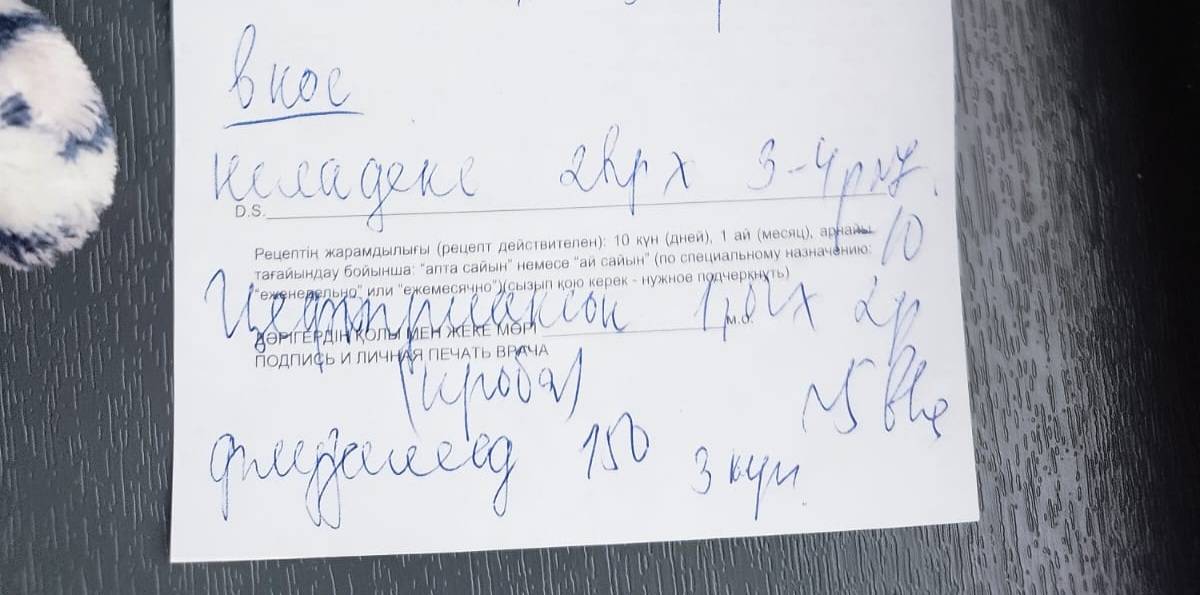 в нос
неладекс 2кр х 3-4р №7.
D.S.
Рецептің жарамдылығы (рецепт действителен): 10 күн (дней), 1 ай (месяц), арнайы
тағайындау бойынша: "апта сайын" немесе "ай сайын" (по специальному назначению:
"еженедельно" или "ежемесячно")(сызып қою керек - нужное подчеркнуть)
10
Цефтриаксон 1,0 х 2р
ДӘРІГЕРДІҢ ҚОЛЫ МЕН ЖЕКЕ МӨРІ
м.о.
ПОДПИСЬ И ЛИЧНАЯ ПЕЧАТЬ ВРАЧА
(проба)
№5
150 3 күн.